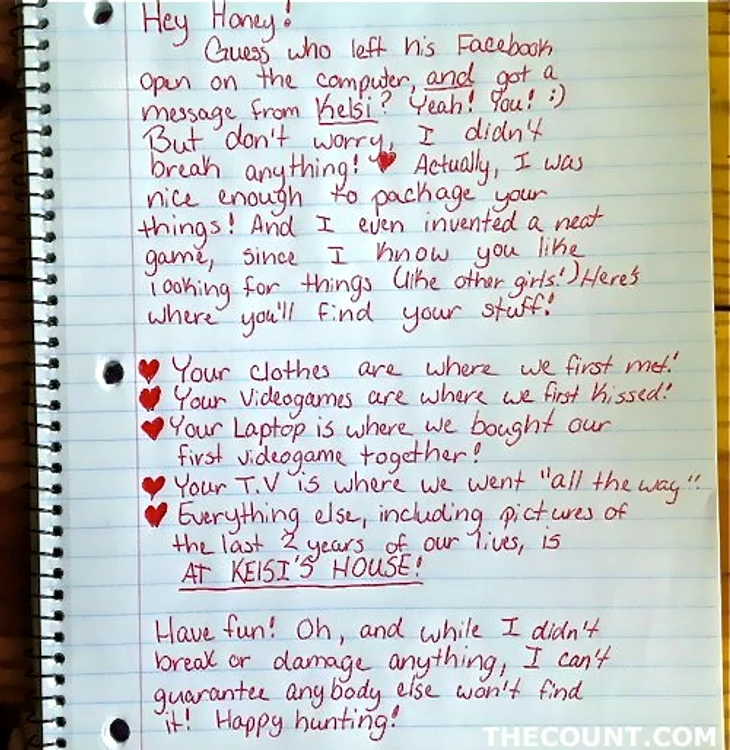 Hey Honey!
Guess who left his Facebook
open on the computer, and got a
message from Kelsi? Yeah! You! :)
But don't worry, I didn't
break anything! ♥ Actually, I was
nice enough to package your
things! And I even invented a neat
game, since I know you like
looking for things (like other girls!) Here's
where you'll find your stuff!
♥ Your clothes are where we first met!
♥ Your Videogames are where we first kissed!
♥ Your Laptop is where we bought our
first videogame together!
♥ Your T.V is where we went "all the way"!
♥ Everything else, including pictures of
the last 2 years of our lives, is
AT KElSI'S HOUSE!
Have fun! Oh, and while I didn't
break or damage anything, I can't
guarantee anybody else won't find
it! Happy hunting!
THECOUNT.COM